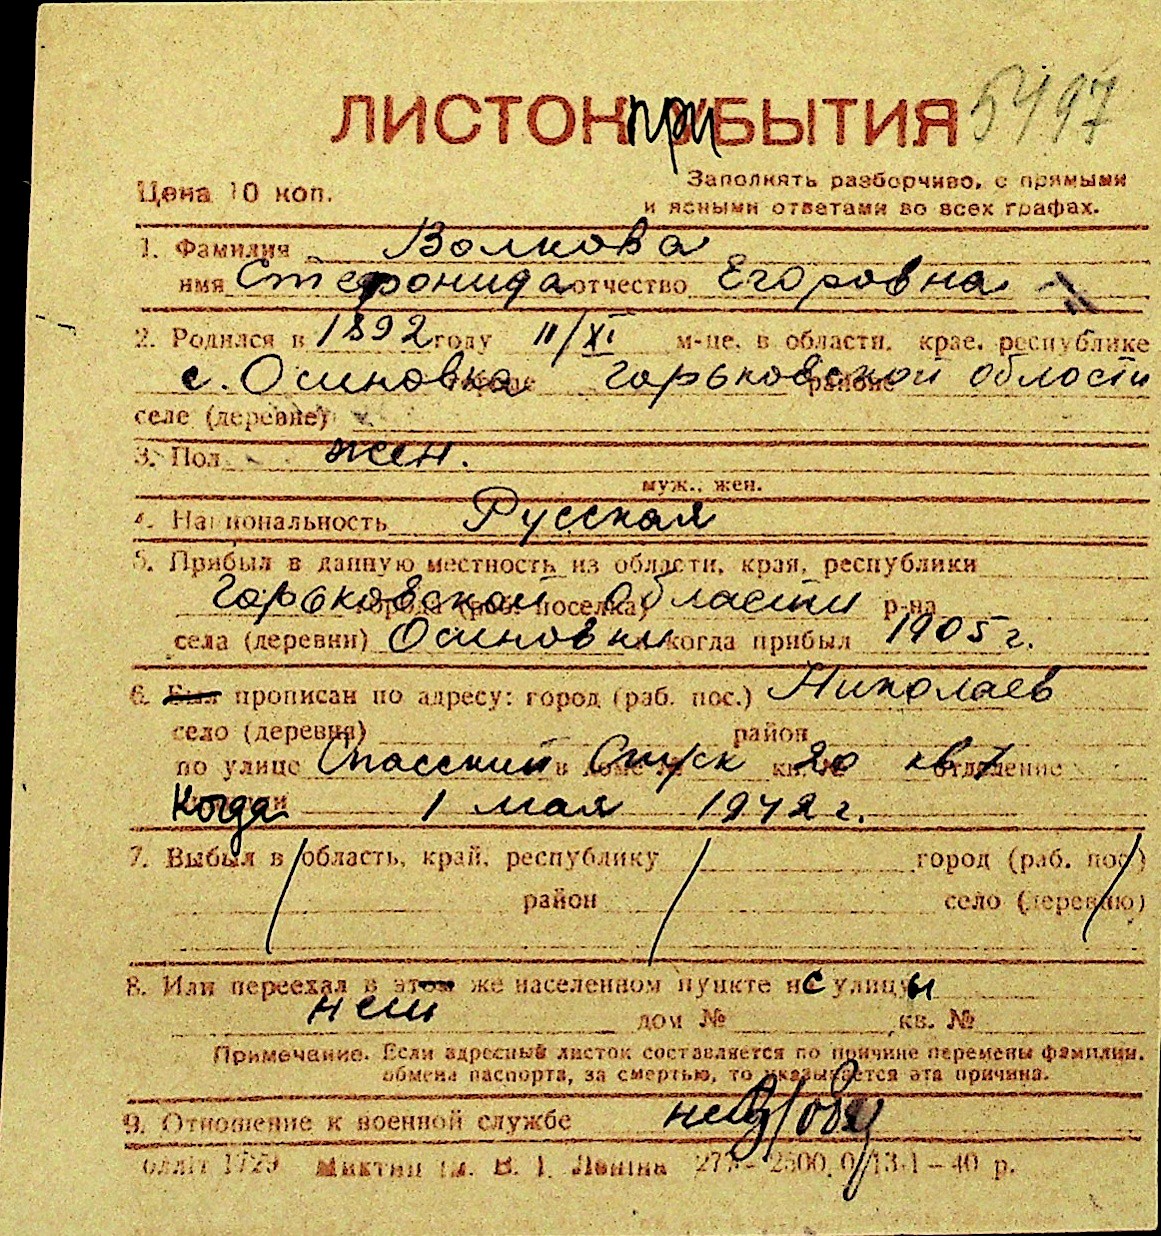 ЛИСТОК ПРИБЫТИЯ 5497
Цена 10 коп.
Заполнять разборчиво, с прямыми
и ясными ответами во всех графах.
1. Фамилия Волкова
имя Стефонида отчество Егоровна
2. Родился в 1892 году 11/XI м-це, в области, крае, республике
с. Осиновка городе Горьковской районе области
селе (деревне)
3. Пол жен.
муж., жен.
4. Национальность Русская
5. Прибыл в данную местность из области, края, республики
Горьковской города (раб. поселка) области р-на
села (деревни) Осиновки когда прибыл 1905 г.
6. Был прописан по адресу: город (раб. пос.) Николаев
село (деревня) район
по улице Спасский в доме № Спуск кв. № 20 кв 7 отделение
Когда 1 мая 1942 г.
7. Выбыл в область, край, республику город (раб. пос.)
район село (деревню)
8. Или переехал в этом же населенном пункте с улицы
нет дом № кв. №
Примечание. Если адресный листок составляется по причине перемены фамилии,
обмена паспорта, за смертью, то указывается эта причина.
9. Отношение к военной службе не в/обяз
1729 ім. В. І. Леніна 2500. 0/13-1 — 40 р.